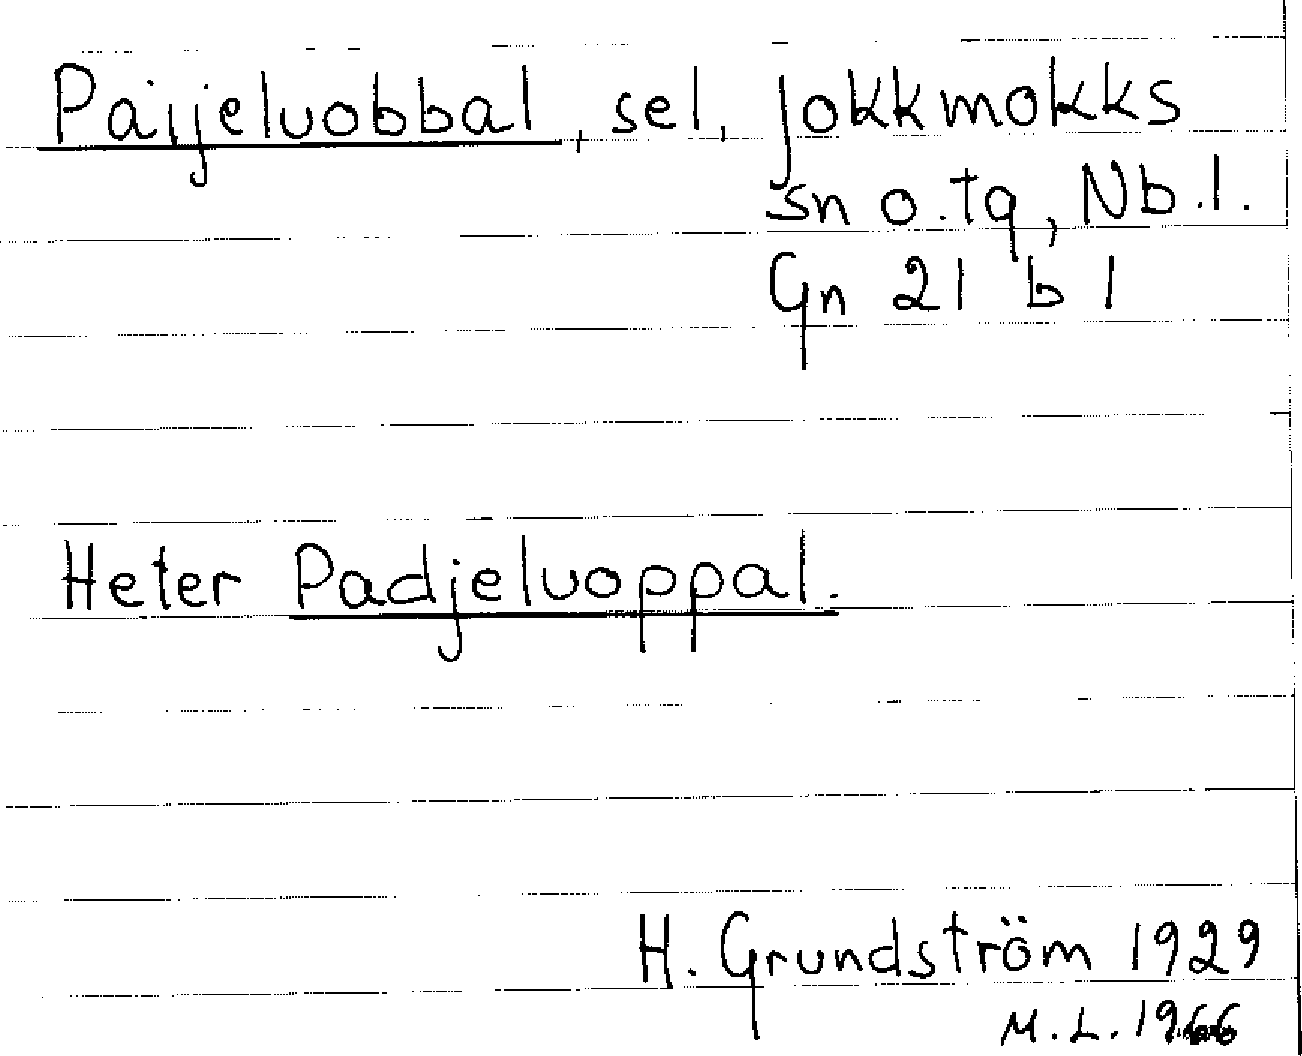 Paijjeluobbal, sel, Jokkmokks
sn o.tg, Nb.l.
Gn 21 b 1
Heter Padjeluoppal.
H. Grundström 1929
M.L. 1966